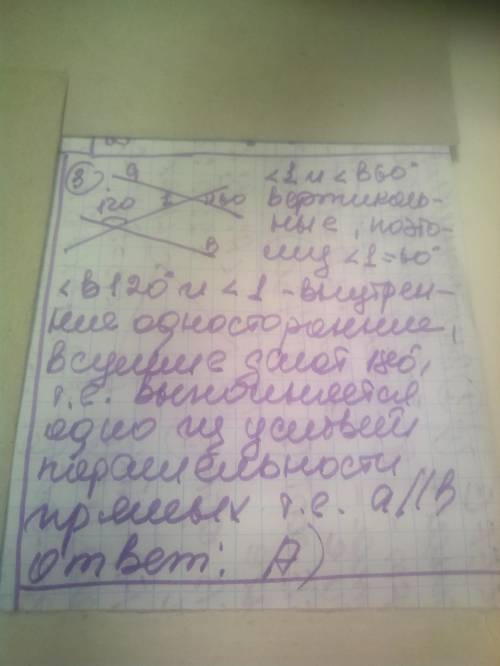 3 a <1 и <В60°
120 1 60 вертикаль-
ные, поэто-
в му <1=60°
<В 120° и <1 - внутрен-
ние односторонние,
в сумме дают 180,
т.е. выполняется
одно из условий
паралельности
прямых т.е. a//в
ответ: А)